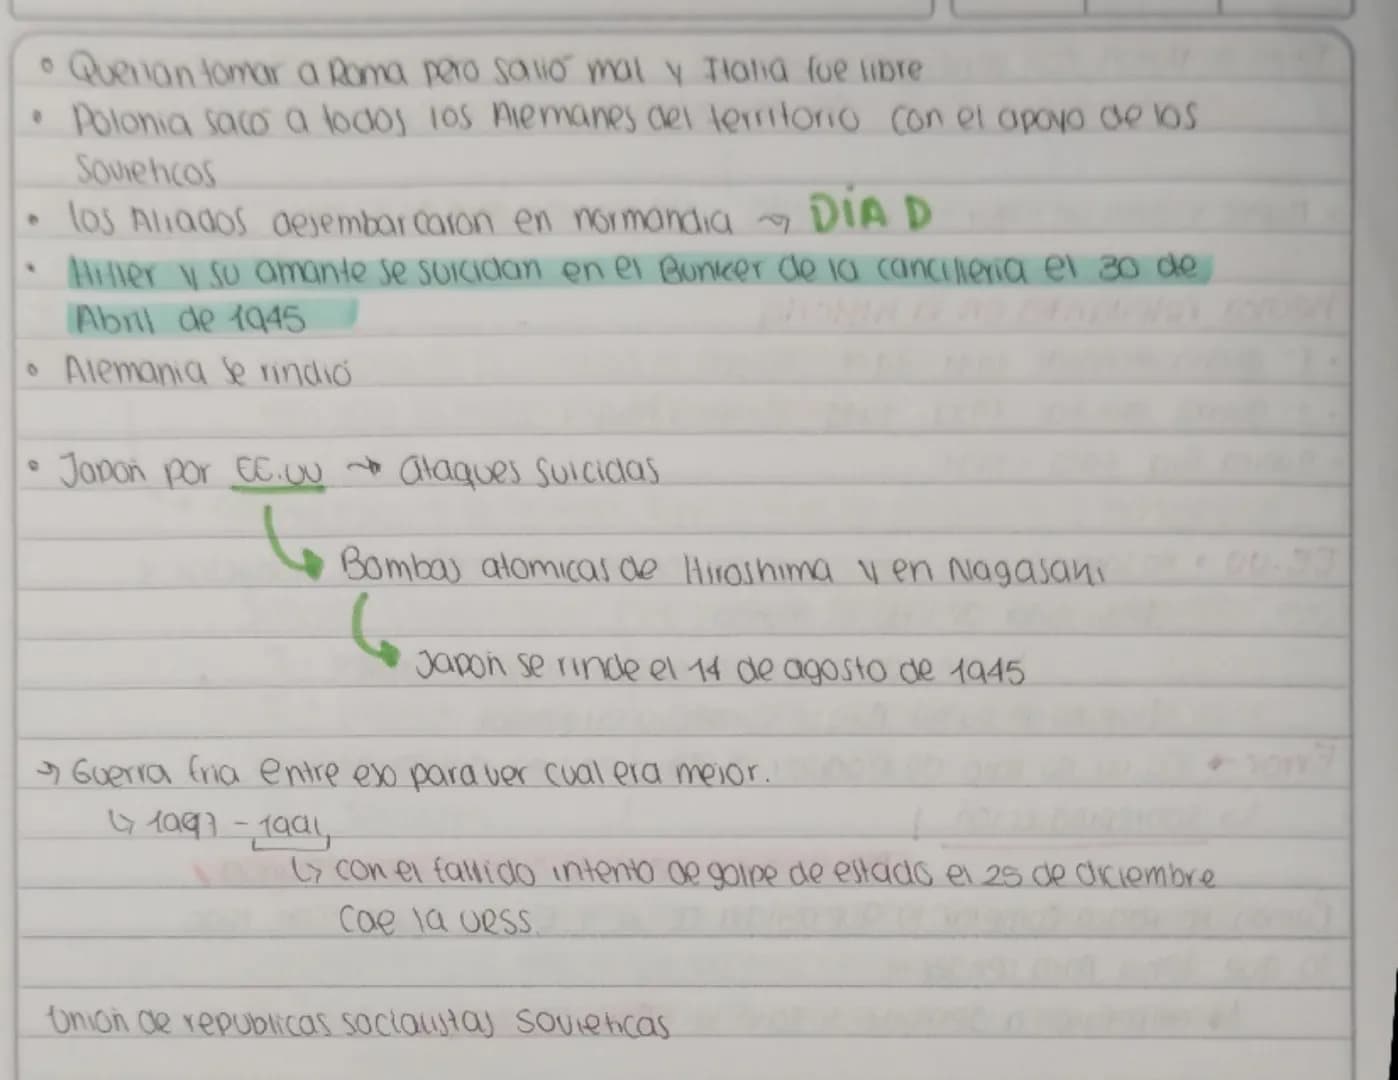 Querian tomar a Roma pero salió mal y Italia fue libre
Polonia sacó a todos los Alemanes del territorio con el apoyo de los
Sovieticos
los Aliados desembarcaron en normandia → DÍA D
Hitler y su amante se suicidan en el Bunker de la cancilleria el 30 de
Abril de 1945
Alemania se rindió
Japón por EE.UU → ataques suicidas
Bombas atomicas de Hiroshima y en Nagasaki
Japón se rinde el 14 de agosto de 1945
→ Guerra fria entre exo para ver cual era mejor.
↳ 1947 - 1991
↳ con el fallido intento de golpe de estado el 25 de diciembre
cae la uess.
Unión de republicas socialistas sovieticas